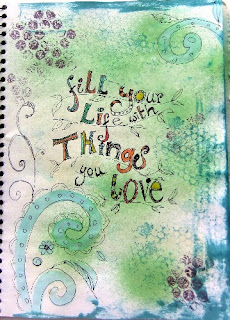 fill your
Life with
THings
you
LOVE